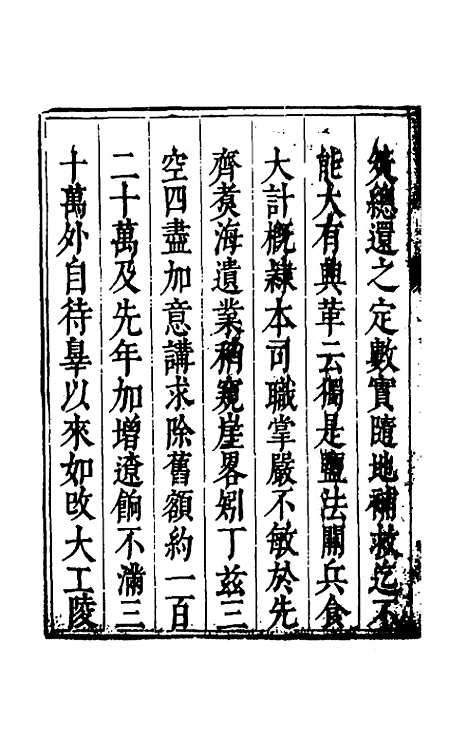 總還之定數實隨地補救迄不
能大有興革云獨是鹽法關兵食
大計槪隷本司職掌嚴不敏於先
齊煑海遺業稍窺崖畧矧丁兹三
空四盡加意講求除舊額約一百
二十萬及先年加增遼餉不滿三
十萬外自待辠以來如改大工陵